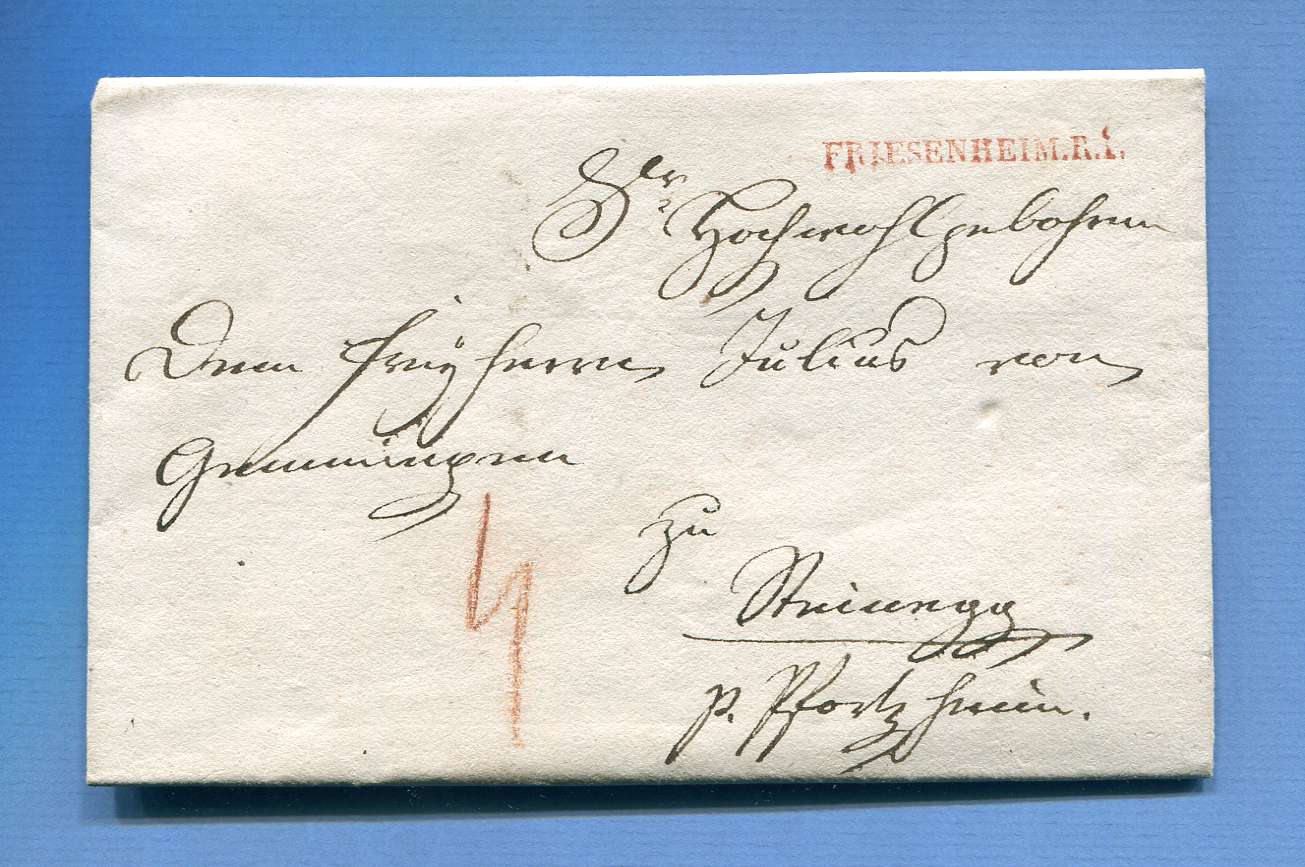 FRIESENHEIM.R.1.
Sr Hochwohlgebohren
Dem Freyherrn Julius von
Gemmingen
4
zu
Steinegg
p. Pfortzheim.